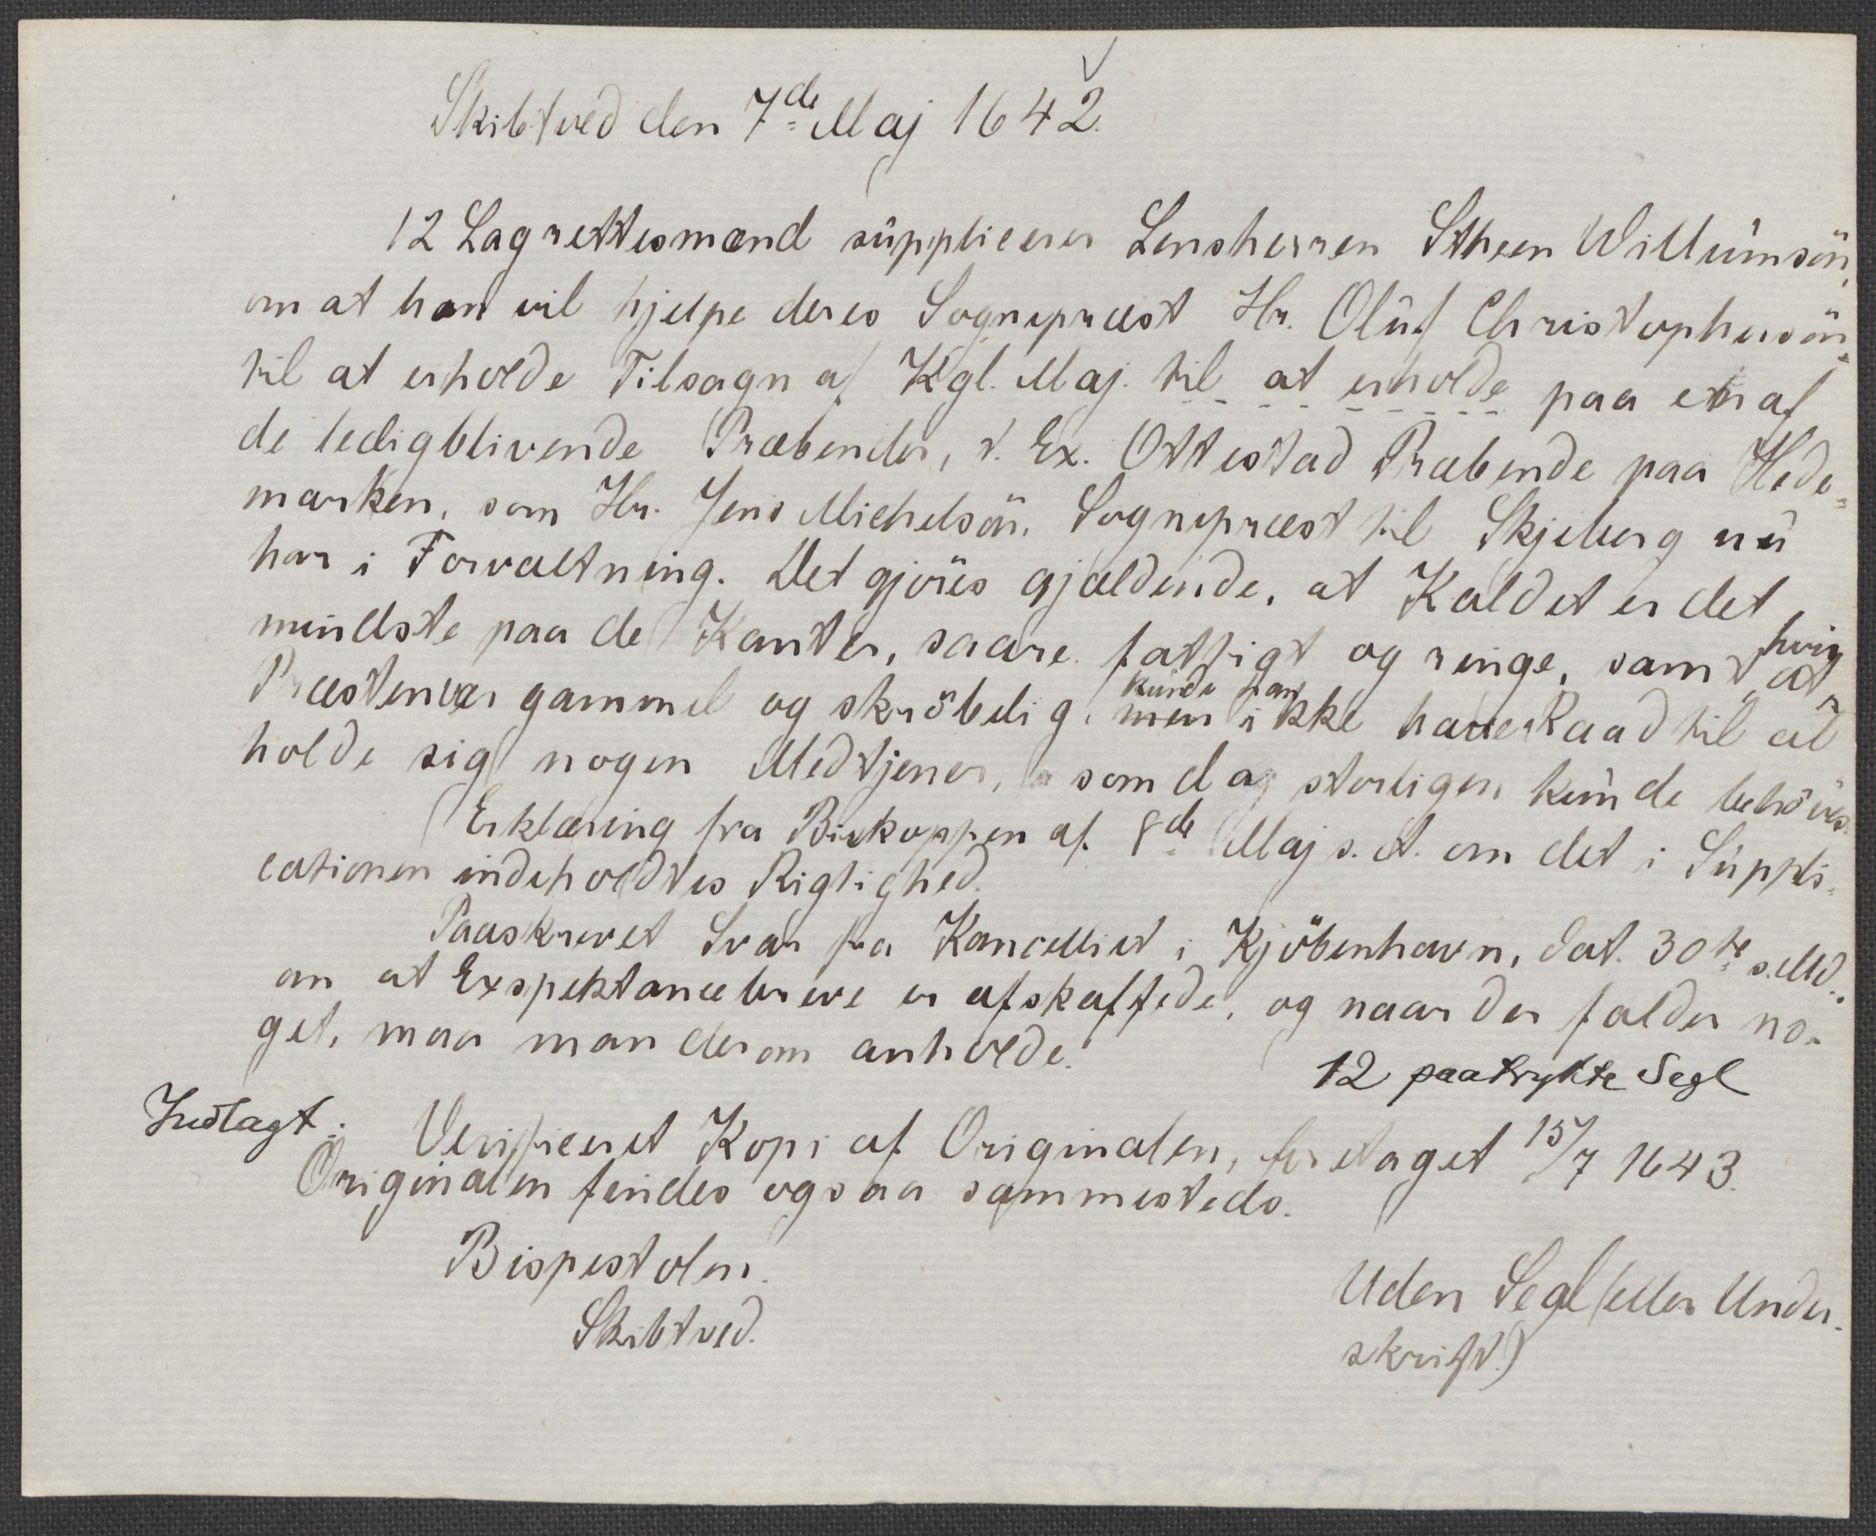 Skibtved den 7de Maj 1642.
12 Lagrettesmænd süpplicerer Lensherren Stheen Willümsön,
om at han vil hjelpe deres Sognepræst Hr. Olüf Christophersön
til at erholde Tilsagn af Kgl. Maj. til at erholde paa et af
de ledigblivende Præbender, t. Ex. Ottestad Præbende paa Hede-
marken, som Hr. Jens Michelsön, Sognepræst til Skjeberg nü
har i Forvaltning. Det gjöres gjældende, at Kaldet er det
mindste paa de Kanter, saare fattigt og ringe, samt at, hvis
Præsten var gammel og skröbelig, men künde han ikke have Raad til at
holde sig nogen Medtjener, som dog storligen künde behöves.
Erklæring fra Biskoppen af 8de Maj s. A. om det i Süppli-
cationen indeholdtes Rigtighed.
Paaskrevet Svar fra Kancelliet i Kjöbenhavn, dat. 30te s. Md.,
om at Exspektancebreve er afskaffede, og naar der falder no-
get, maa man derom anholde.
12 paatrykte Segl
Indlagt: Verificeret Kopi af Originalen, foretaget 15/7 1643.
Originalen findes ogsaa sammesteds.
Bispestolen.
Skibtved.
Uden Segl (eller Under-
skrift.)